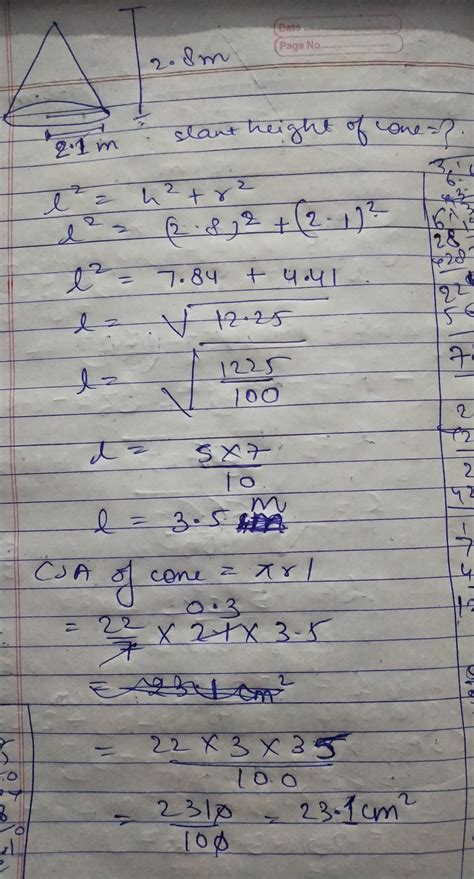 Date
Page No.
2.8m
2.1 m
slant height of cone = ?
l² = h² + r²
l² = (2.8)² + (2.1)²
l² = 7.84 + 4.41
l = √12.25
l = √1225/100
l = 5×7/10
l = 3.5 m
CSA of cone = πrl
0.3
= 22/7 × 21 × 3.5
= 231 cm²
= 22 × 3 × 35/100
= 2310/100 = 23.1 cm²